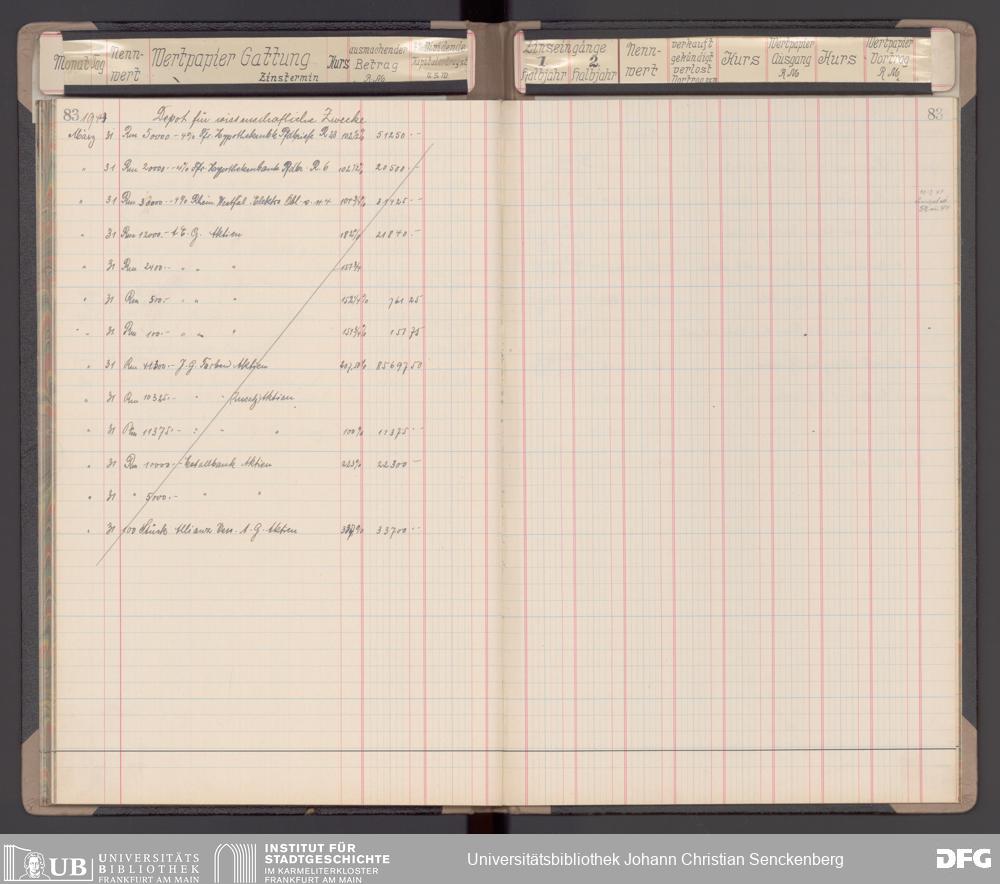 Monat Tag
Nenn-wert
Wertpapier Gattung
Zinstermin
Kurs
ausmachender Betrag
R.M.
Zinseingänge
1 Halbjahr
2 Halbjahr
Nenn-wert
verkauft gekündigt verlost
Kurs
Wertpapier Ausgang
R.M.
Kurs
Wertpapier Vortrag
R.M.
83
83
Depot für wissenschaftliche Zwecke
März 31 Rm 50000.- 4% Pfr. Hypothekenbk Pfdbriefe R 102½% 51250.-
" 31 Rm 20000.- 4% Pfr. Hypothekenbank Pfdbr. R. 6 102½% 20500.-
" 31 Rm 30000.- 4% Rhein Westfal. Elektro 104¾% 31425.-
" 31 Rm 12000.- A.E.G. Aktien 182% 21840.-
" 31 Rm 2400.- " " " 151¾
" 31 Rm 500.- " " " 152¼% 761 25
" 31 Rm 100.- " " " 151¾% 151 75
" 31 Rm 41300.- J.G. Farben Aktien 207,50% 85697 50
" 31 Rm 10325.- " " (Zusatz) Aktien
" 31 Rm 11375.- " " " 100% 11375.-
" 31 Rm 10000.- Metallbank Aktien 223% 22300.-
" 31 " 5000.- " "
" 31 100 Stück Allianz Vers. A.G. Aktien 337% 33700.-
UB UNIVERSITÄTS
BIBLIOTHEK
FRANKFURT AM MAIN
INSTITUT FÜR
STADTGESCHICHTE
IM KARMELITERKLOSTER
FRANKFURT AM MAIN
Universitätsbibliothek Johann Christian Senckenberg
DFG